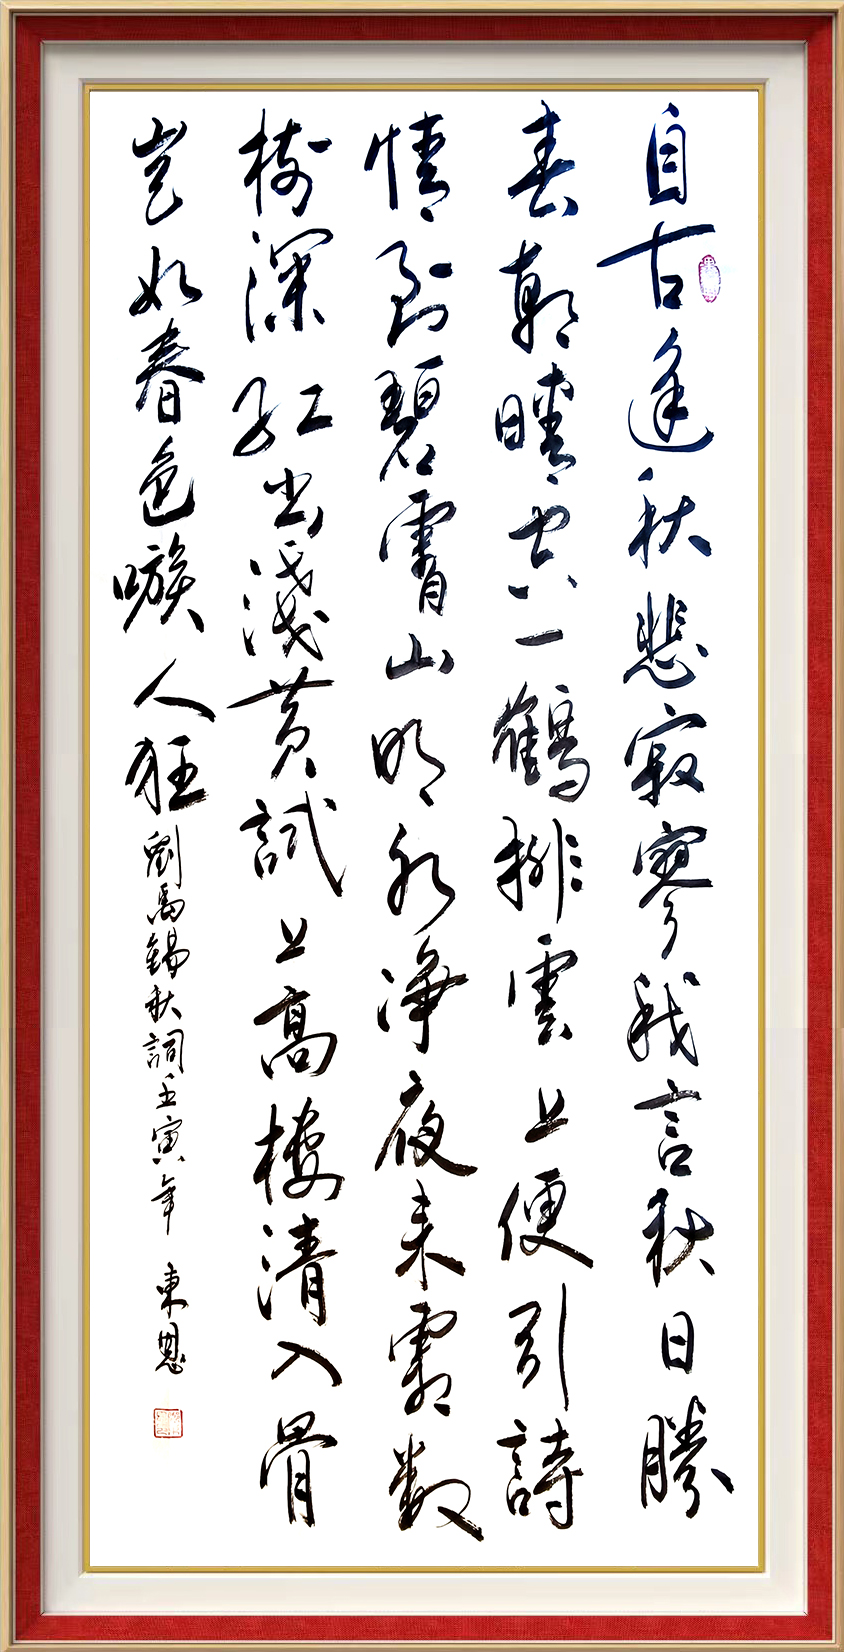 自古逢秋悲寂寥我言秋日勝
春朝晴空一鶴排雲上便引詩
情到碧霄山明水淨夜来霜數
樹深紅出淺黃試上高樓清入骨
豈如春色嗾人狂
劉禹錫秋詞壬寅年 東恩